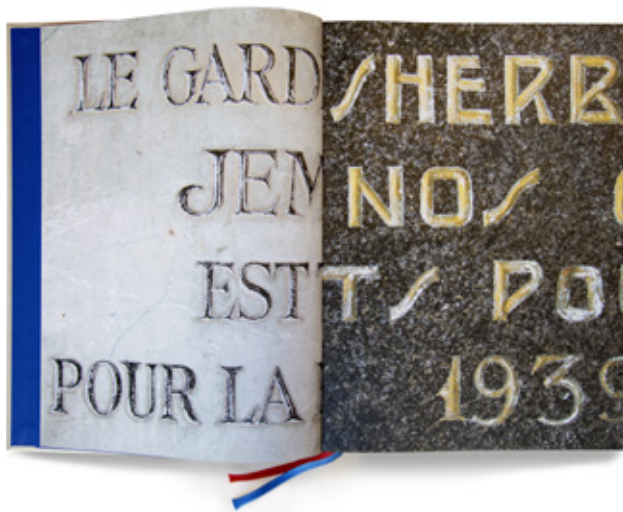 LE GARD
JEM
EST
POUR LA
SHERB
NOS
TS POU
1939